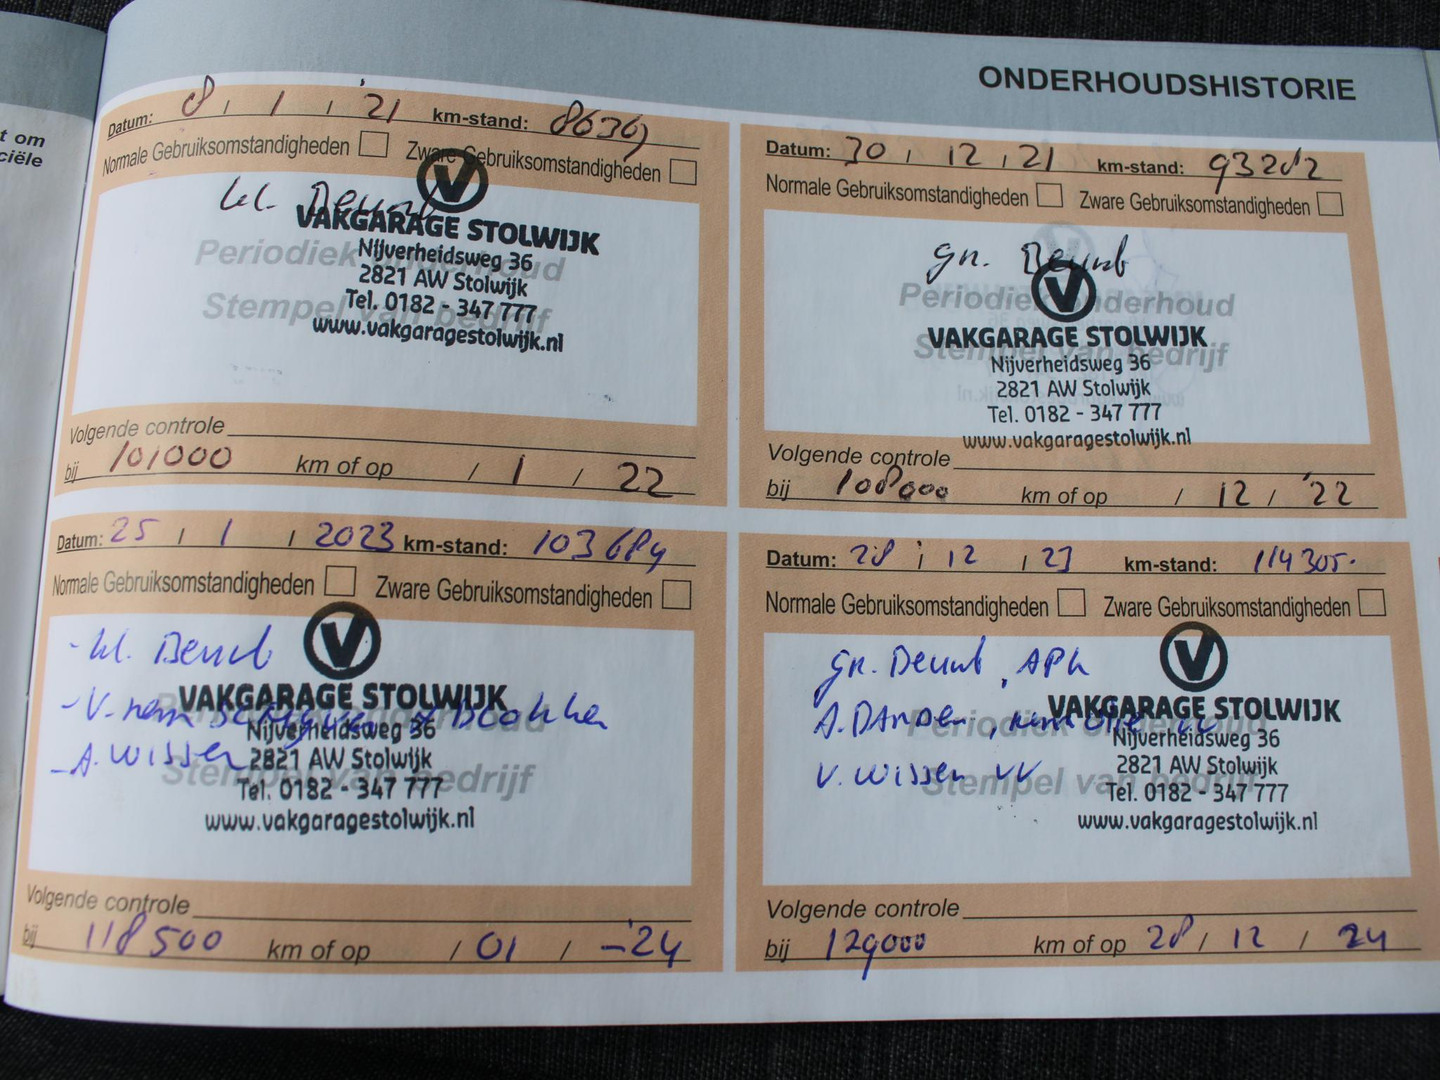 t om
ciële
ONDERHOUDSHISTORIE
Datum: 8 / 1 / '21 km-stand: 86369
Normale Gebruiksomstandigheden Zware Gebruiksomstandigheden
kl. Beurt
VAKGARAGE STOLWIJK
Nijverheidsweg 36
Periodiek onderhoud
2821 AW Stolwijk
Tel. 0182 - 347 777
Stempel van bedrijf
www.vakgaragestolwijk.nl
Volgende controle
bij 101000 km of op / 1 / 22
Datum: 30 / 12 / 21 km-stand: 93282
Normale Gebruiksomstandigheden Zware Gebruiksomstandigheden
gr. Beurt
Periodiek onderhoud
VAKGARAGE STOLWIJK
Stempel van bedrijf
Nijverheidsweg 36
2821 AW Stolwijk
Tel. 0182 - 347 777
www.vakgaragestolwijk.nl
Volgende controle
bij 108000 km of op / 12 / '22
Datum: 25 / 1 / 2023 km-stand: 103684
Normale Gebruiksomstandigheden Zware Gebruiksomstandigheden
- kl. Beurt
VAKGARAGE STOLWIJK
- V. rem schijven & blokken
Periodiek onderhoud
Nijverheidsweg 36
- A. wissen
2821 AW Stolwijk
Stempel van bedrijf
Tel. 0182 - 347 777
www.vakgaragestolwijk.nl
Volgende controle
bij 118500 km of op / 01 / -'24
Datum: 28 / 12 / 23 km-stand: 114305.
Normale Gebruiksomstandigheden Zware Gebruiksomstandigheden
gr. Beurt, APK
VAKGARAGE STOLWIJK
A. Banden,
Periodiek onderhoud
Nijverheidsweg 36
V. wissen VV
2821 AW Stolwijk
Stempel van bedrijf
Tel. 0182 - 347 777
www.vakgaragestolwijk.nl
Volgende controle
bij 129000 km of op 28 / 12 / 24